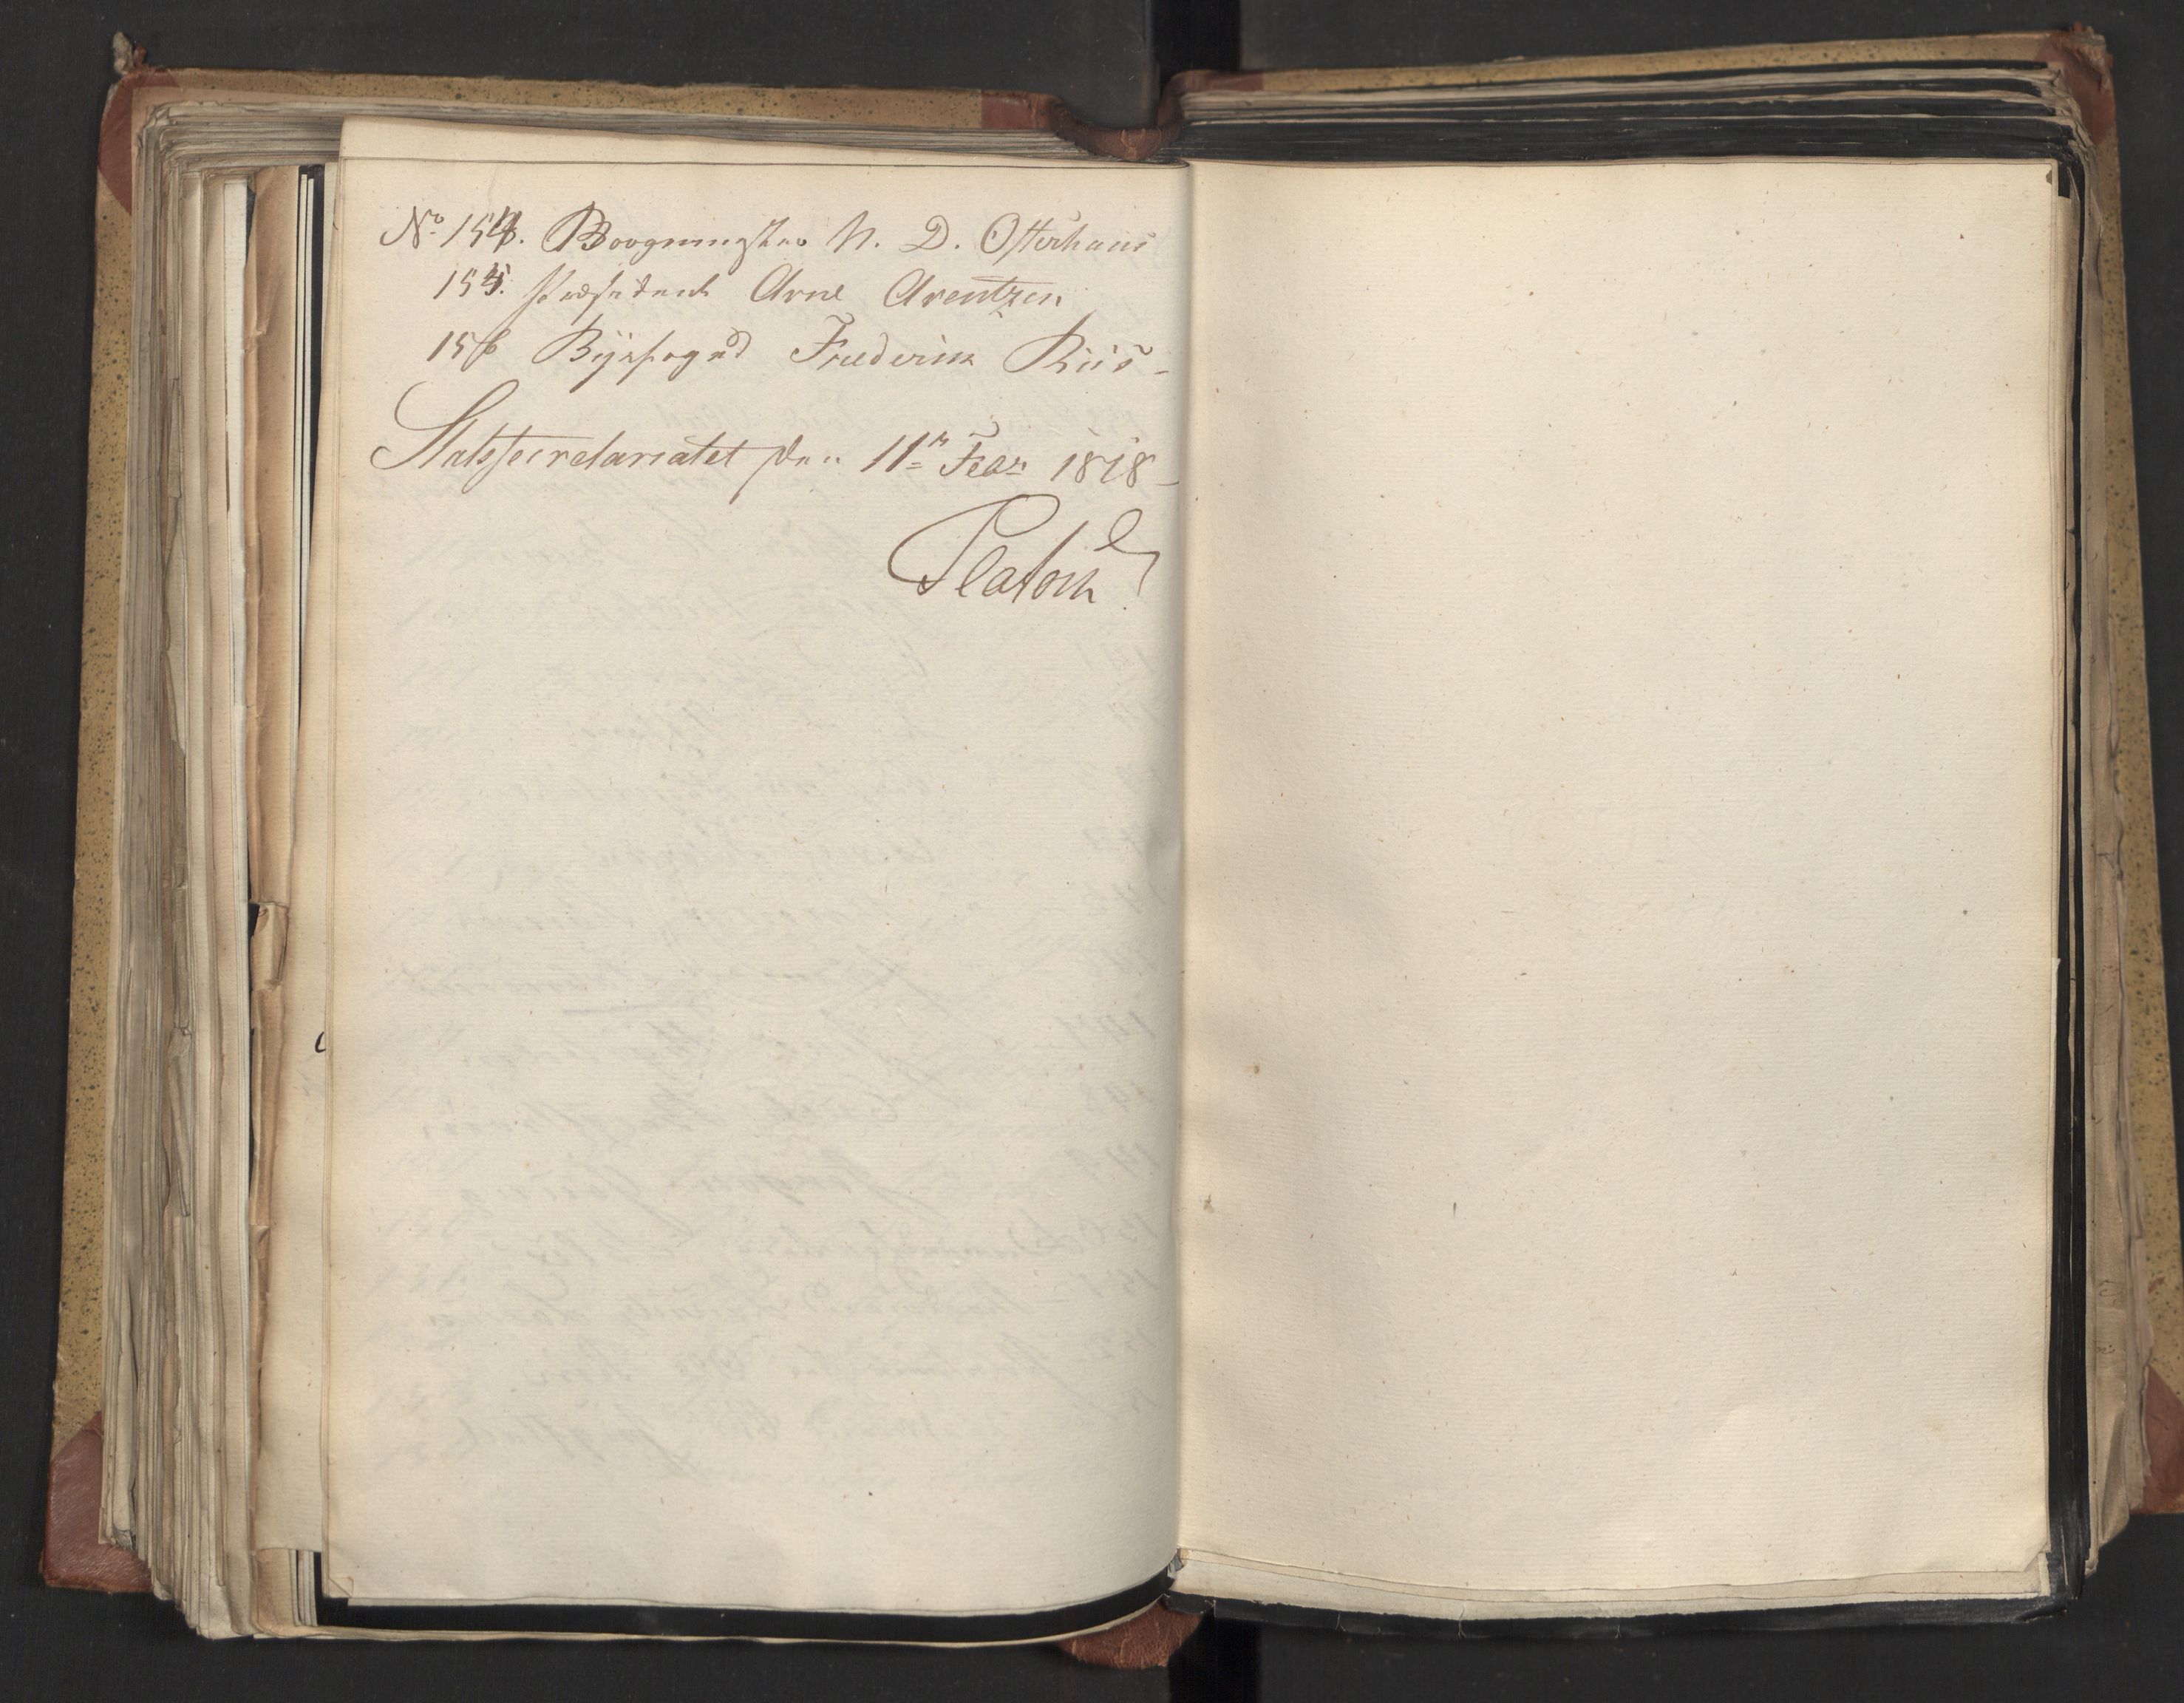 No 154. Borgemester N. D. Osterhaus
155. Præsident Arne Arentzen
156 Byefogd Friederich Riis
Statssecretariatet den 11te Febr 1818
Platou